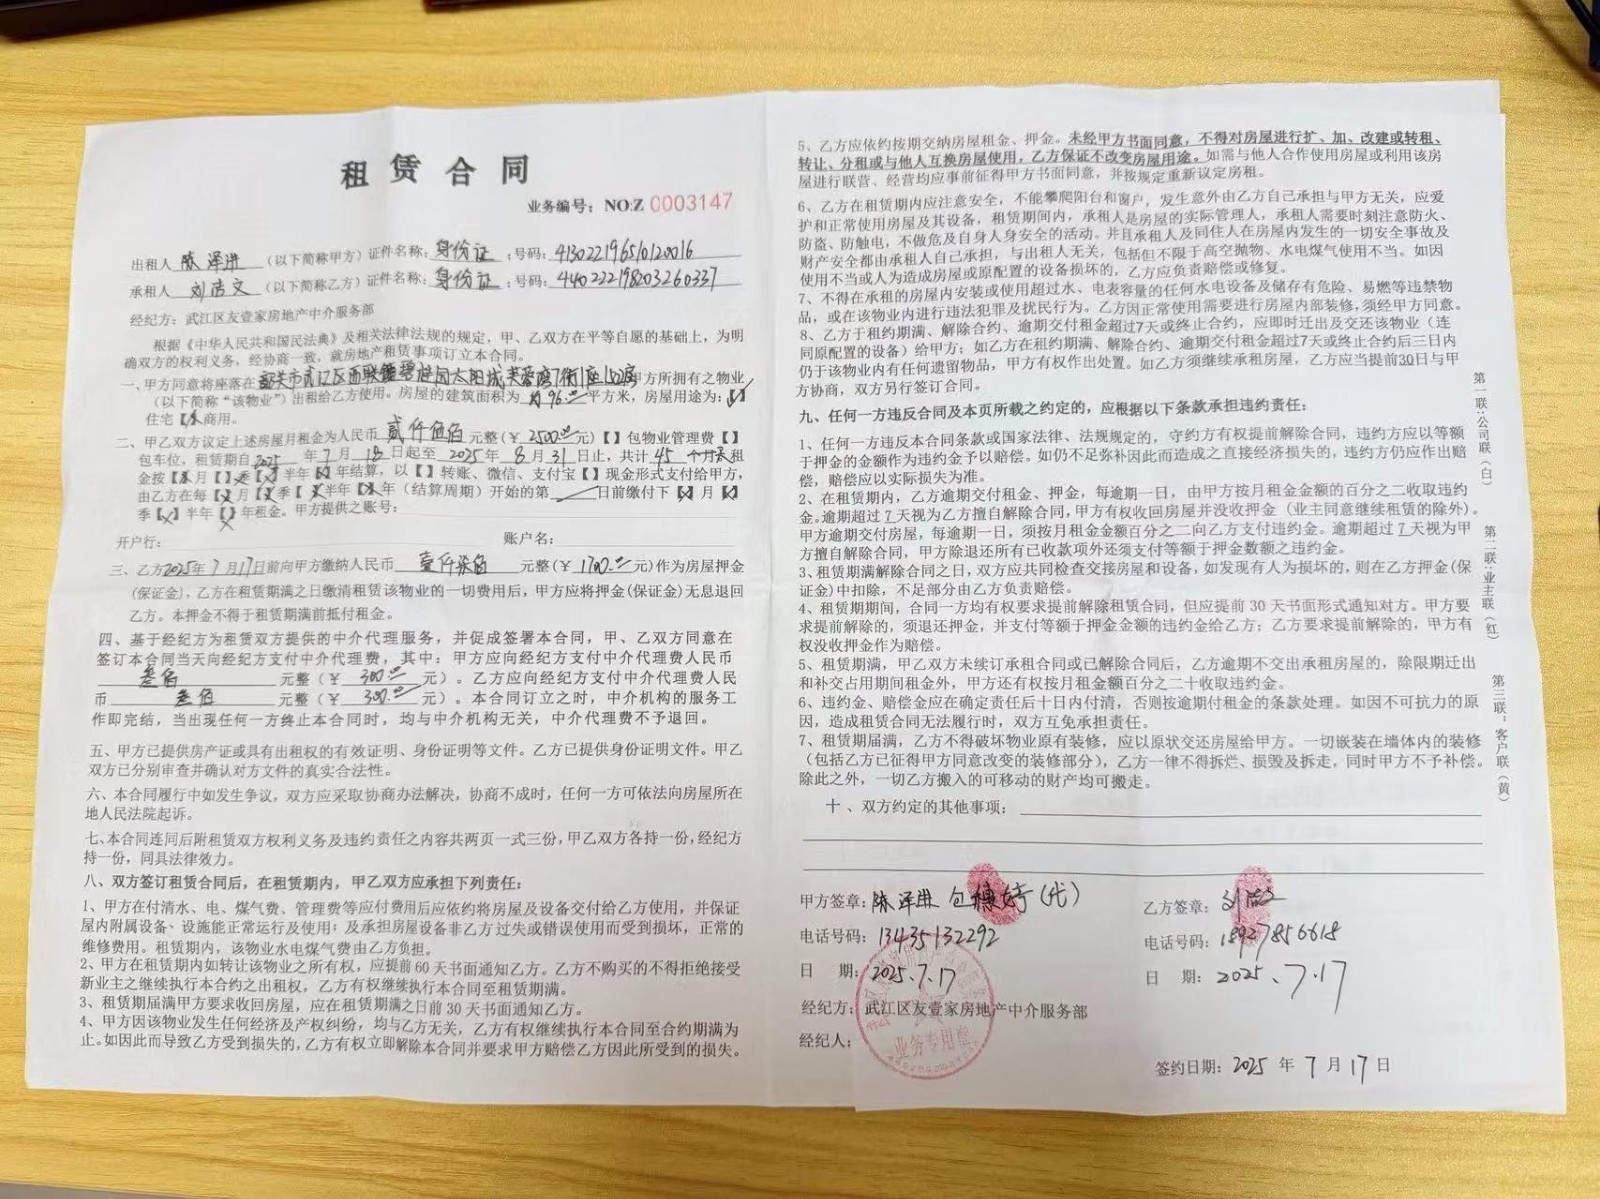 租赁合同
业务编号：NO:Z 0003147
出租人 陈泽进 （以下简称甲方）证件名称：身份证 ；号码：413022196510120016
承租人 刘浩文 （以下简称乙方）证件名称：身份证 ；号码：440222198203260337
经纪方：武江区友壹家房地产中介服务部
根据《中华人民共和国民法典》及相关法律法规的规定，甲、乙双方在平等自愿的基础上，为明
确双方的权利义务，经协商一致，就房地产租赁事项订立本合同。
一、甲方同意将座落在韶关市武江区西联镇碧桂园太阳城芙蓉湾7街1座 甲方所拥有之物业
（以下简称“该物业”）出租给乙方使用。房屋的建筑面积为 约96.00 平方米，房屋用途为：【】
住宅【】商用。
二、甲乙双方议定上述房屋月租金为人民币 贰仟伍佰 元整（￥ 2500.00 元）【】包物业管理费【】
包车位，租赁期自2025 年 7 月 18 日起至 2025 年 8 月 31 日止，共计 45 天租
金按【】月【】季【】半年【】年结算，以【】转账、微信、支付宝【】现金形式支付给甲方，
由乙方在每【】月【】季【】半年【】年（结算周期）开始的第 日前缴付下【】月【】
季【】半年【】年租金。甲方提供之账号：
开户行： 账户名：
三、乙方2025年7月17日前向甲方缴纳人民币 壹仟柒佰 元整（￥ 1700.00 元）作为房屋押金
（保证金），乙方在租赁期满之日缴清租赁该物业的一切费用后，甲方应将押金（保证金）无息退回
乙方。本押金不得于租赁期满前抵付租金。
四、基于经纪方为租赁双方提供的中介代理服务，并促成签署本合同，甲、乙双方同意在
签订本合同当天向经纪方支付中介代理费，其中：甲方应向经纪方支付中介代理费人民币
叁佰 元整（￥ 300.00 元）。乙方应向经纪方支付中介代理费人民
币 叁佰 元整（￥ 300.00 元）。本合同订立之时，中介机构的服务工
作即完结，当出现任何一方终止本合同时，均与中介机构无关，中介代理费不予退回。
五、甲方已提供房产证或具有出租权的有效证明、身份证明等文件。乙方已提供身份证明文件。甲乙
双方已分别审查并确认对方文件的真实合法性。
六、本合同履行中如发生争议，双方应采取协商办法解决，协商不成时，任何一方可依法向房屋所在
地人民法院起诉。
七、本合同连同后附租赁双方权利义务及违约责任之内容共两页一式三份，甲乙双方各持一份，经纪方
持一份，同具法律效力。
八、双方签订租赁合同后，在租赁期内，甲乙双方应承担下列责任：
1、甲方在付清水、电、煤气费、管理费等应付费用后应依约将房屋及设备交付给乙方使用，并保证
屋内附属设备、设施能正常运行及使用；及承担房屋设备非乙方过失或错误使用而受到损坏，正常的
维修费用。租赁期内，该物业水电煤气费由乙方负担。
2、甲方在租赁期内如转让该物业之所有权，应提前60天书面通知乙方。乙方不购买的不得拒绝接受
新业主之继续执行本合约之出租权，乙方有权继续执行本合同至租赁期满。
3、租赁期届满甲方要求收回房屋，应在租赁期满之日前30天书面通知乙方。
4、甲方因该物业发生任何经济及产权纠纷，均与乙方无关，乙方有权继续执行本合同至合约期满为
止。如因此而导致乙方受到损失的，乙方有权立即解除本合同并要求甲方赔偿乙方因此所受到的损失。
5、乙方应依约按期交纳房屋租金、押金。未经甲方书面同意，不得对房屋进行扩、加、改建或转租、
转让、分租或与他人互换房屋使用，乙方保证不改变房屋用途。如需与他人合作使用房屋或利用该房
屋进行联营、经营均应事前征得甲方书面同意，并按规定重新议定房租。
6、乙方在租赁期内应注意安全，不能攀爬阳台和窗户，发生意外由乙方自己承担与甲方无关，应爱
护和正常使用房屋及其设备，租赁期间内，承租人是房屋的实际管理人，承租人需要时刻注意防火、
防盗、防触电，不做危及自身人身安全的活动。并且承租人及同住人在房屋内发生的一切安全事故及
财产安全都由承租人自己承担，与出租人无关，包括但不限于高空抛物、水电煤气使用不当。如因
使用不当或人为造成房屋或原配置的设备损坏的，乙方应负责赔偿或修复。
7、不得在承租的房屋内安装或使用超过水、电表容量的任何水电设备及储存有危险、易燃等违禁物
品，或在该物业内进行违法犯罪及扰民行为。乙方因正常使用需要进行房屋内部装修，须经甲方同意。
8、乙方于租约期满、解除合约、逾期交付租金超过7天或终止合约，应即时迁出及交还该物业（连
同原配置的设备）给甲方；如乙方在租约期满、解除合约、逾期交付租金超过7天或终止合约后三日内
仍于该物业内有任何遗留物品，甲方有权作出处置。如乙方须继续承租房屋，乙方应当提前30日与甲
方协商，双方另行签订合同。
九、任何一方违反合同及本页所载之约定的，应根据以下条款承担违约责任：
1、任何一方违反本合同条款或国家法律、法规规定的，守约方有权提前解除合同，违约方应以等额
于押金的金额作为违约金予以赔偿。如仍不足弥补因此而造成之直接经济损失的，违约方仍应作出赔
偿，赔偿应以实际损失为准。
2、在租赁期内，乙方逾期交付租金、押金，每逾期一日，由甲方按月租金金额的百分之二收取违约
金。逾期超过 7 天视为乙方擅自解除合同，甲方有权收回房屋并没收押金（业主同意继续租赁的除外）。
甲方逾期交付房屋，每逾期一日，须按月租金金额百分之二向乙方支付违约金。逾期超过 7 天视为甲
方擅自解除合同，甲方除退还所有已收款项外还须支付等额于押金数额之违约金。
3、租赁期满解除合同之日，双方应共同检查交接房屋和设备，如发现有人为损坏的，则在乙方押金（保
证金）中扣除，不足部分由乙方负责赔偿。
4、租赁期期间，合同一方均有权要求提前解除租赁合同，但应提前 30 天书面形式通知对方。甲方要
求提前解除的，须退还押金，并支付等额于押金金额的违约金给乙方；乙方要求提前解除的，甲方有
权没收押金作为赔偿。
5、租赁期满，甲乙双方未续订承租合同或已解除合同后，乙方逾期不交出承租房屋的，除限期迁出
和补交占用期间租金外，甲方还有权按月租金额百分之二十收取违约金。
6、违约金、赔偿金应在确定责任后十日内付清，否则按逾期付租金的条款处理。如因不可抗力的原
因，造成租赁合同无法履行时，双方互免承担责任。
7、租赁期届满，乙方不得破坏物业原有装修，应以原状交还房屋给甲方。一切嵌装在墙体内的装修
（包括乙方已征得甲方同意改变的装修部分），乙方一律不得拆烂、损毁及拆走，同时甲方不予补偿。
除此之外，一切乙方搬入的可移动的财产均可搬走。
十、双方约定的其他事项：
甲方签章：陈泽进 包穗婷（代）
电话号码：13435132292
日 期：2025.7.17
经纪方：武江区友壹家房地产中介服务部
经纪人：
业务专用章
乙方签章：刘浩文
电话号码：18927856618
日 期：2025.7.17
签约日期：2025 年 7 月 17 日
第一联：公司联（白）
第二联：业主联（红）
第三联：客户联（黄）